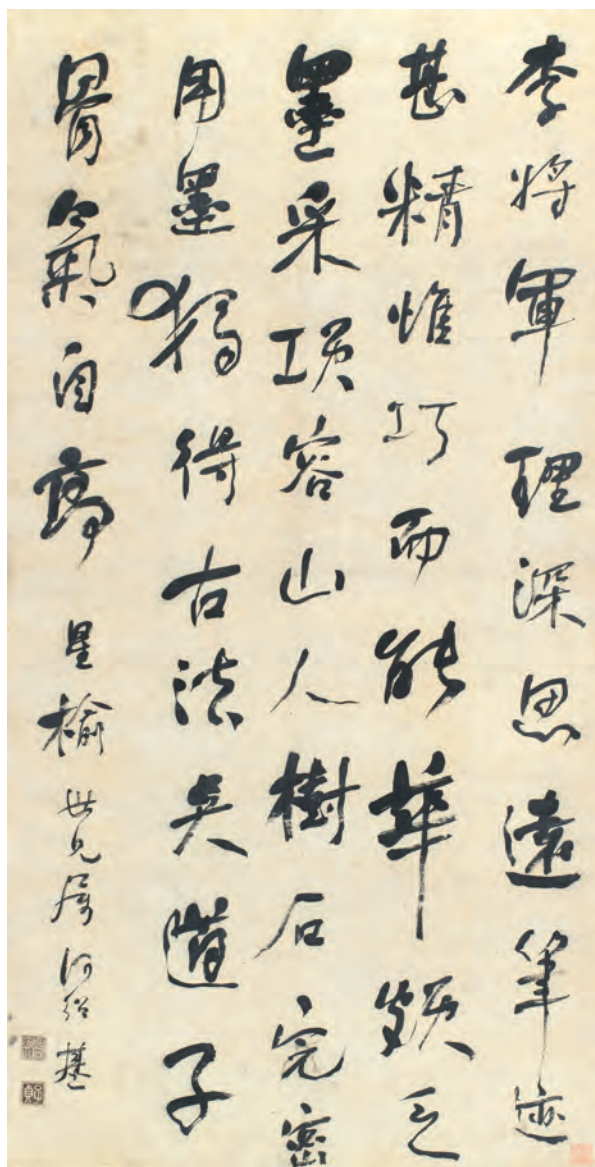 李將軍理深思遠筆迹
甚精惟巧而能華缺乏
墨采項容山人樹石完密
用墨獨得古法吳道子
骨氣自高 星榆世兄屬 何紹基